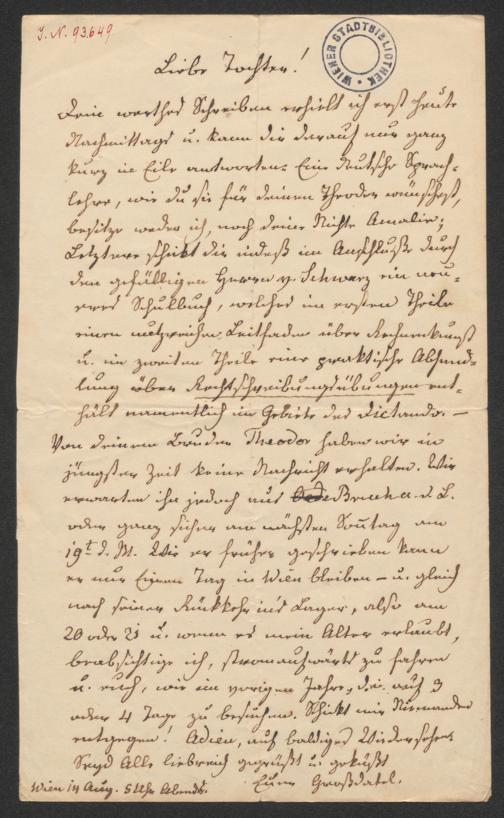 J. N. 93.649
WIENER STADTBIBLIOTHEK
Liebe Tochter!
Dein werthes Schreiben erhielt ich erst heute
Nachmittags u. kann dir darauf nur ganz
kurz in Eile antworten. Eine deutsche Sprach-
lehre, wie du sie für deinen Theodor wünschest,
besitze weder ich, noch deine Nichte Amalie;
Letztere schickt dir indeß im Anschluße durch
den gefälligen Herrn v. Schwarz ein neu-
eres Schulbuch, welches im ersten Theile
einen nutzreichen Leitfaden über Rechenkunst
u. im zweiten Theile eine praktische Abhand-
lung über Rechtschreibungsübungen ent-
hält namentlich im Gebiete des Dictando. —
Von deinem Bruder Theodor haben wir in
jüngster Zeit keine Nachricht erhalten. Wir
erwarten ihn jedoch aus Bruck a. d. L.
oder ganz sicher am nächsten Sonntag am
19t. d. M. Wie er früher geschrieben kann
er nur Einen Tag in Wien bleiben – u. gleich
nach seiner Rückkehr in's Lager, also am
20 oder 21 u. wenn es mein Alter erlaubt,
beabsichtige ich, stromaufwärts zu fahren
u. euch, wie im vorigen Jahre, d. i. auf 3
oder 4 Tage zu besuchen. Schickt mir Niemanden
entgegen! Adieu, auf baldiges Wiedersehen
Seyd Alle liebreich gegrüßt u. geküßt
Wien 14 Aug. 5 Uhr Abends. Euer Großdatel.